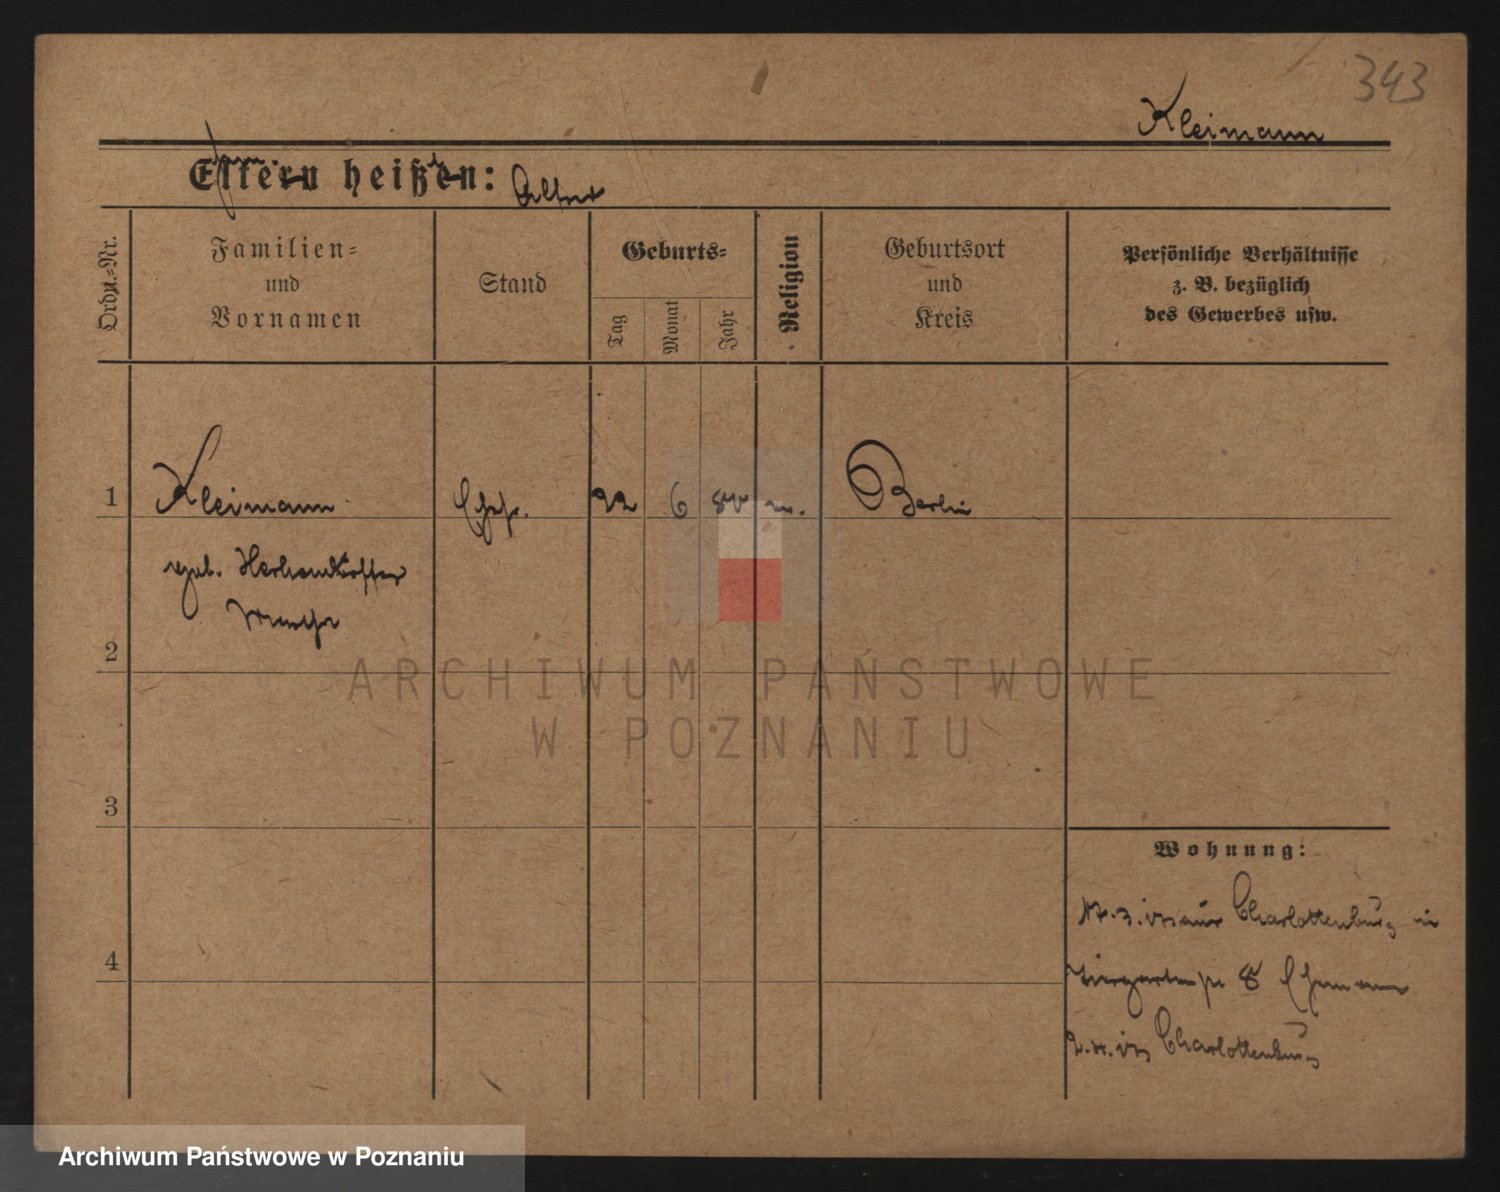 343
Kleimann
Eltern heißen: Alfred
Ordn.-Nr.
Familien=
und
Vornamen
Stand
Geburts=
Tag
Monat
Jahr
Religion
Geburtsort
und
Kreis
Persönliche Verhältnisse
z. B. bezüglich
des Gewerbes usw.
1 Kleimann Ehefr. 22 6 m. Berlin
geb.
2
3
4
Wohnung:
Charlottenburg in
8 Ehemann
Charlottenburg
ARCHIWUM PAŃSTWOWE
W POZNANIU
Archiwum Państwowe w Poznaniu